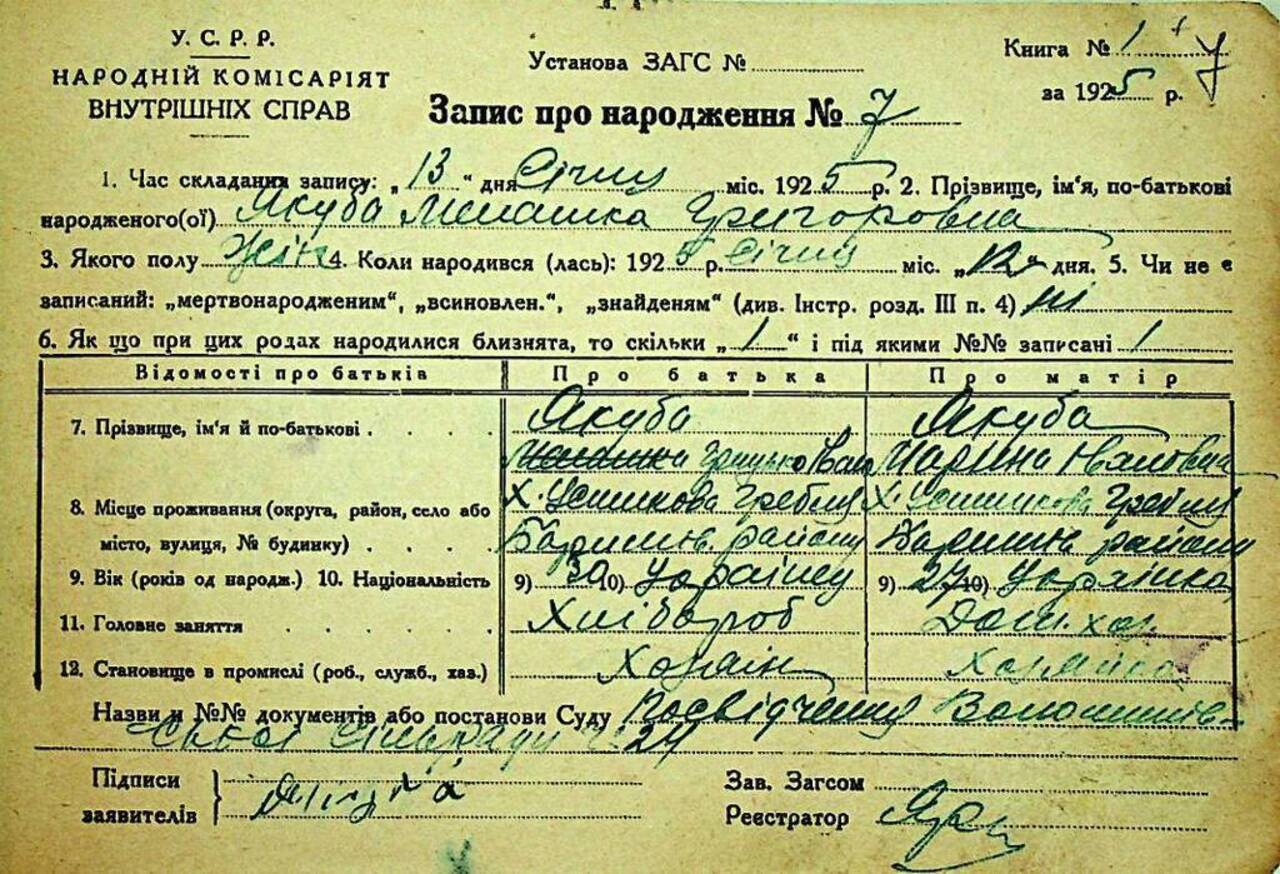 У. С. Р. Р.
НАРОДНІЙ КОМІСАРІЯТ
ВНУТРІШНІХ СПРАВ
Установа ЗАГС №
Книга № 1
за 1925 р.
Запис про народження № 7
1. Час складання запису: „13“ дня Січня міс. 1925 р. 2. Прізвище, ім'я, по-батькові
народженого(ої) Якуба Меланка Григоровна
3. Якого полу Жін 4. Коли народився (лась): 1925 р. Січня міс. „12“ дня. 5. Чи не є
записаний: „мертвонародженим“, „всиновлен.“, „знайденям“ (див. Інстр. розд. III п. 4) ні
6. Як що при цих родах народилися близнята, то скільки „1“ і під якими №№ записані 1
Відомості про батьків Про батька Про матір
7. Прізвище, ім'я й по-батькові Якуба Якуба
Грицько Іван Марина
8. Місце проживання (округа, район, село або Х. Усишкова Гребля Х. Усишкова Гребля
місто, вулиця, № будинку) Баришів. району Баришів. району
9. Вік (років од народж.) 10. Національність 9) 30 10) Українец 9) 27 10) Українка
11. Головне заняття Хлібороб Дом. хоз.
12. Становище в промислі (роб., служб., хаз.) Хозяін Хозяйка
Назви и №№ документів або постанови Суду Посвідчення Волошинів-
ської Сільради № 27
Підписи
заявителів
Зав. Загсом
Реєстратор